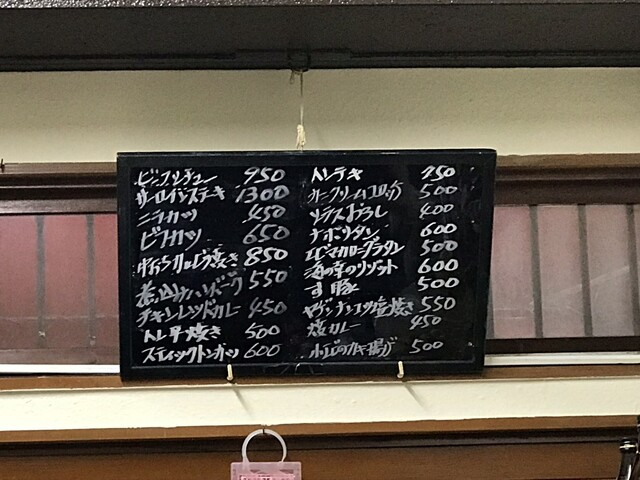 ビーフシチュー 950
サーロインステーキ 1300
ニラカツ 450
ビフカツ 650
牛おろし焼き 850
煮込みハンバーグ 550
チキンレッドカレー 450
トン平焼き 500
スティックトンカツ 600
トンテキ 750
カニクリームコロッケ 500
おろし 400
ナポリタン 600
エビマカロニグラタン 500
海の幸のリゾット 600
す豚 500
ヤゲンナンコツ塩焼き 550
焼カレー 450
小エビのカキ揚げ 500